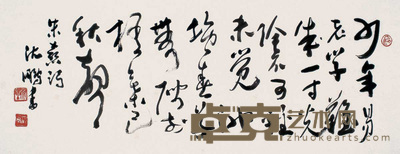 少年易
老学難
成一寸光
陰不可輕
未覺池
塘春草
夢階前
梧葉已
秋聲
朱熹詩
沈鹏書
卓克艺术网